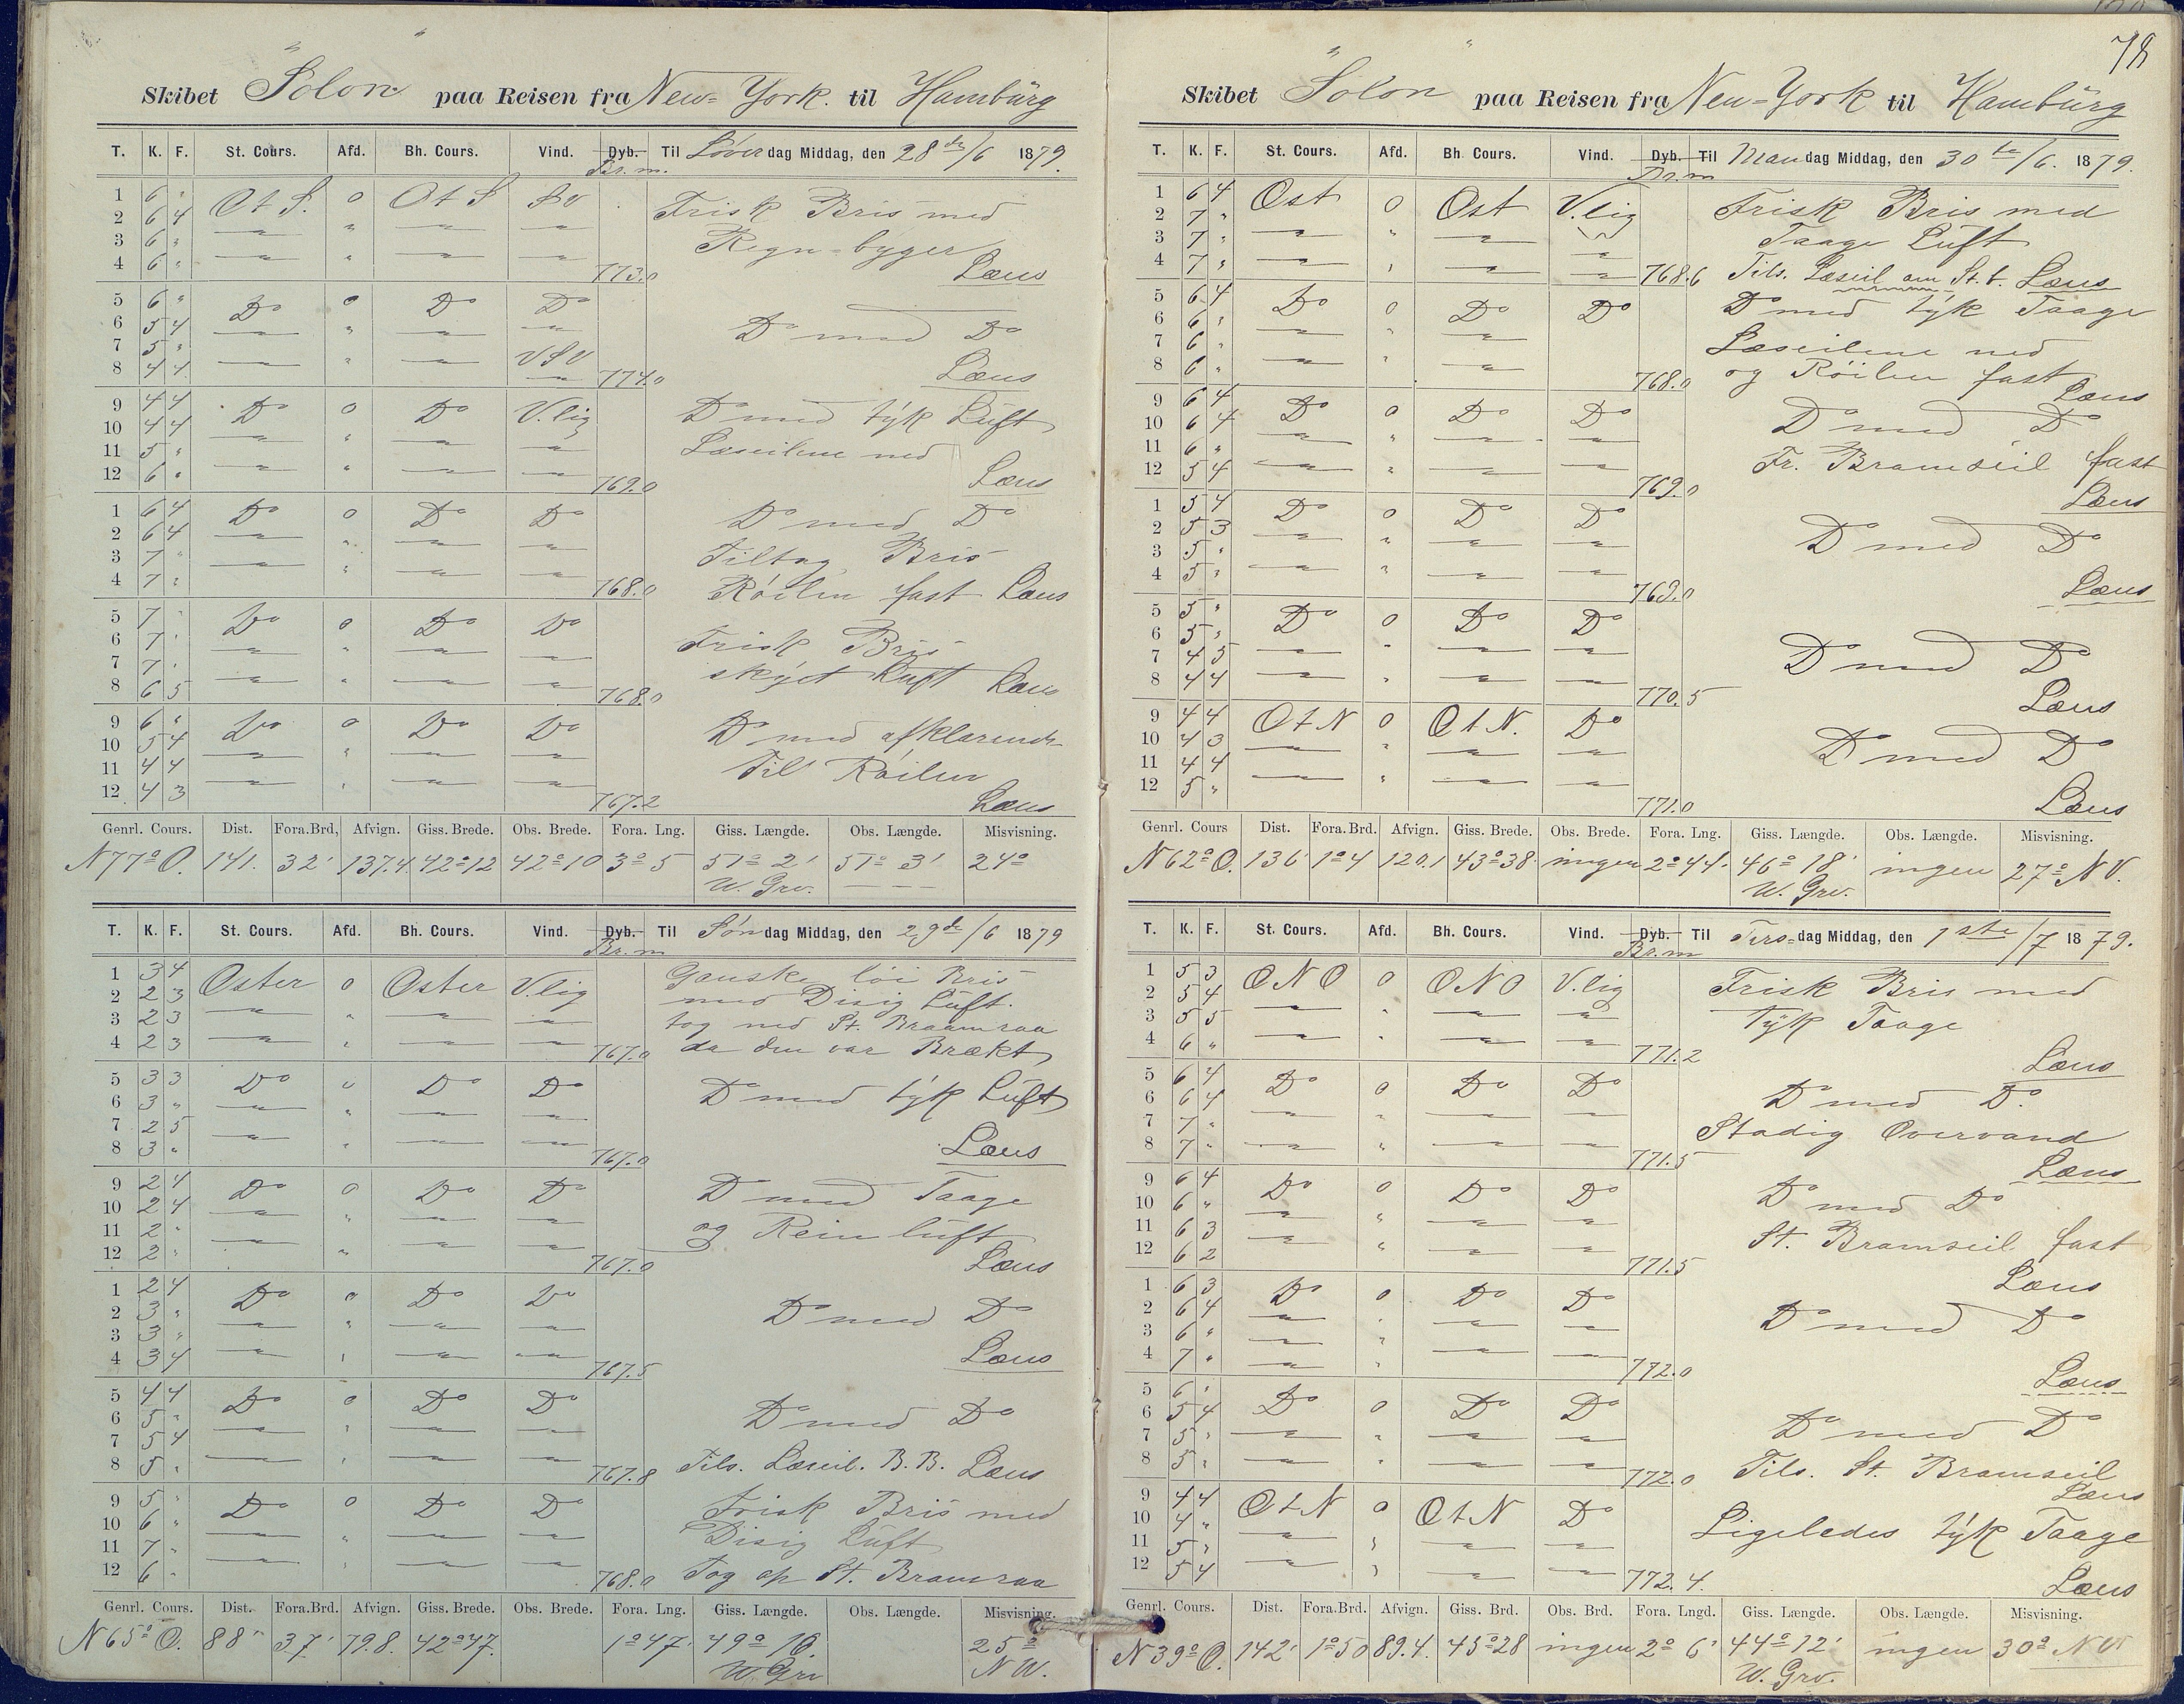 Skibet "Solon" paa Reisen fra New-York. til Hamburg
T. K. F. St. Cours. Afd. Bh. Cours. Vind. Dyb. Br.m. Til Löverdag Middag, den 28de/6 1879.
1 6 " O t S. 0 O t S SV Frisk Bris med
2 6 4 " " " " Regn-byger
3 6 "
4 6 " " " " " 773.0 Læns
5 6 " Do 0 Do Do
6 5 4 " " " " Do med Do
7 5 " VSV
8 4 4 " " " " 774.0 Læns
9 4 4 Do 0 Do V.lig Do med tÿk Luft
10 4 4 " " " " Læseilene ned
11 5 "
12 6 " " " " " 769.0 Læns
1 6 4 Do 0 Do Do Do med Do
2 6 4 " " " " Tiltag. Bris
3 7 "
4 7 " " " " " 768.0 Röilen fast Læns
5 7 " Do 0 Do Do Frisk Bris
6 7 " " " " "
7 7 " skÿet Luft Læns
8 6 5 " " " " 768.0
9 6 " Do 0 Do Do Do med afklarende
10 5 4 " " " " Til Röilen
11 4 4
12 4 3 " " " " 767.2 Læns
Genrl. Cours. Dist. Fora.Brd, Afvign. Giss. Brede. Obs. Brede. Fora. Lng. Giss. Længde. Obs. Længde. Misvisning.
N 77° O. 141. 32' 137.4. 42° 12 42° 10 3° 5 51° 2' 51° 3' 24°
W. Grv.
T. K. F. St. Cours. Afd. Bh. Cours. Vind. Dyb. Br.m Til Söndag Middag, den 29de/6 1879
1 3 4 Oster 0 Oster V.lig Ganske löi Bris
2 2 3 " " " " med Disig Luft.
3 2 3 tog ned St. Braamraa
4 2 3 " " " " 767.0 da den var Brækt
5 3 3 Do 0 Do Do Do med tÿk Luft
6 3 " " " " "
7 2 5
8 3 " " " " " 767.0 Læns
9 2 4 Do 0 Do Do Do med Taage
10 2 4 " " " " og Rein luft
11 2 "
12 2 " " " " " 767.0 Læns
1 2 4 Do 0 Do Do Do med Do
2 3 " " " " "
3 3 "
4 3 4 " " " " 767.5 Læns
5 4 4 Do 0 Do Do Do med Do
6 5 " " " " "
7 5 4
8 5 " " " " " 767.8 Tils. Læseil. B.B. Læns
9 5 " Do 0 Do Do Frisk Bris med
10 6 " " " " " Disig Luft
11 7 "
12 6 " " " " " 768.0 Tog op St. Bramraa
Genrl. Cours. Dist. Fora.Brd. Afvign. Giss. Brede. Obs. Brede. Fora. Lng. Giss. Længde. Obs. Længde. Misvisning.
N 65° O. 88' 37' 79.8. 42° 47. 1° 47' 49° 16. 25°
W. Grv N W.
78
Skibet "Solon" paa Reisen fra New-York til Hamburg
T. K. F. St. Cours. Afd. Bh. Cours. Vind. Dyb. Br.m Til Mandag Middag, den 30te/6. 1879.
1 6 4 Ost 0 Ost V.lig Frisk Bris med
2 7 " " " " " Taage Luft
3 7 "
4 7 " " " " " 768.6 Tils. Læseil om St.b. Læns
5 6 4 Do 0 Do Do Do med tÿk Taage
6 6 " " " " Læseilene ned
7 6 "
8 6 " " " " 768.0 og Röilen fast Læns
9 6 4 Do 0 Do Do Do med Do
10 6 4 " " " " Fr. Bramseil fast
11 6 "
12 5 4 " " " " 769.0 Læns
1 5 4 Do 0 Do Do Do med Do
2 5 3 " " " "
3 5 "
4 5 " " " " " 769.0 Læns
5 5 " Do 0 Do Do
6 5 " " " " " Do med Do
7 4 5
8 4 4 " " " " 770.5 Læns
9 4 4 O t N 0 O t N. Do Do med Do
10 4 3 " " " "
11 4 4
12 5 " " " " " 771.0 Læns
Genrl. Cours Dist. Fora.Brd. Afvign. Giss. Brede. Obs. Brede. Fora. Lng. Giss. Længde. Obs. Længde. Misvisning.
N 62° O. 136' 1° 4 120.1 43° 38. ingen 2° 44. 46° 18' ingen 27° N V.
W. Grv.
T. K. F. St. Cours. Afd. Bh. Cours. Vind. Dyb. Br.m Til Tirs-dag Middag, den 1ste/7 1879.
1 5 3 O N O 0 O N O V.lig Frisk Bris med
2 5 4 " " " " Tÿk Taage
3 5 5
4 6 " " " " " 771.2 Læns
5 6 4 Do 0 Do Do Do med Do
6 6 4 " " " " Stadig Overvand
7 7 "
8 7 " " " " " 771.5 Læns
9 6 4 Do 0 Do Do Do med Do
10 6 " " " " " St. Bramseil fast
11 6 3
12 6 2 " " " " 771.5 Læns
1 6 3 Do 0 Do Do Do med Do
2 6 4 " " " "
3 6 "
4 7 " " " " " 772.0 Læns
5 6 " Do 0 Do Do Do med Do
6 5 4 " " " "
7 5 " Tils. St. Bramseil
8 5 " " " " " 772.0 Læns
9 4 4 O t N 0 O t N Do Ligeledes tÿk Taage
10 4 " " " " "
11 5 "
12 5 4 " " " " 772.4. Læns
Genrl. Cours. Dist. Fora.Brd. Afvign. Giss. Brd. Obs. Brd. Fora. Lngd. Giss. Længde. Obs. Længde. Misvisning.
N 39° O. 142' 1° 50 89.4. 45° 28 ingen 2° 6' 44° 12' ingen 30° N V
W. Grv.